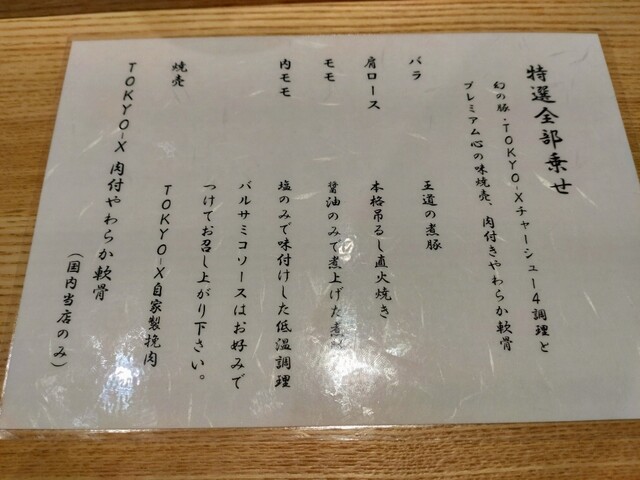 特選全部乗せ
幻の豚・TOKYO-Xチャーシュー4調理と
プレミアム心の味焼売、肉付きやわらか軟骨
バラ 王道の煮豚
肩ロース 本格吊るし直火焼き
モモ 醤油のみで煮上げた煮
内モモ 塩のみで味付けした低温調理
バルサミコソースはお好みで
つけてお召し上がり下さい。
焼売 TOKYO-X自家製挽肉
TOKYO-X 肉付やわらか軟骨
(国内当店のみ)